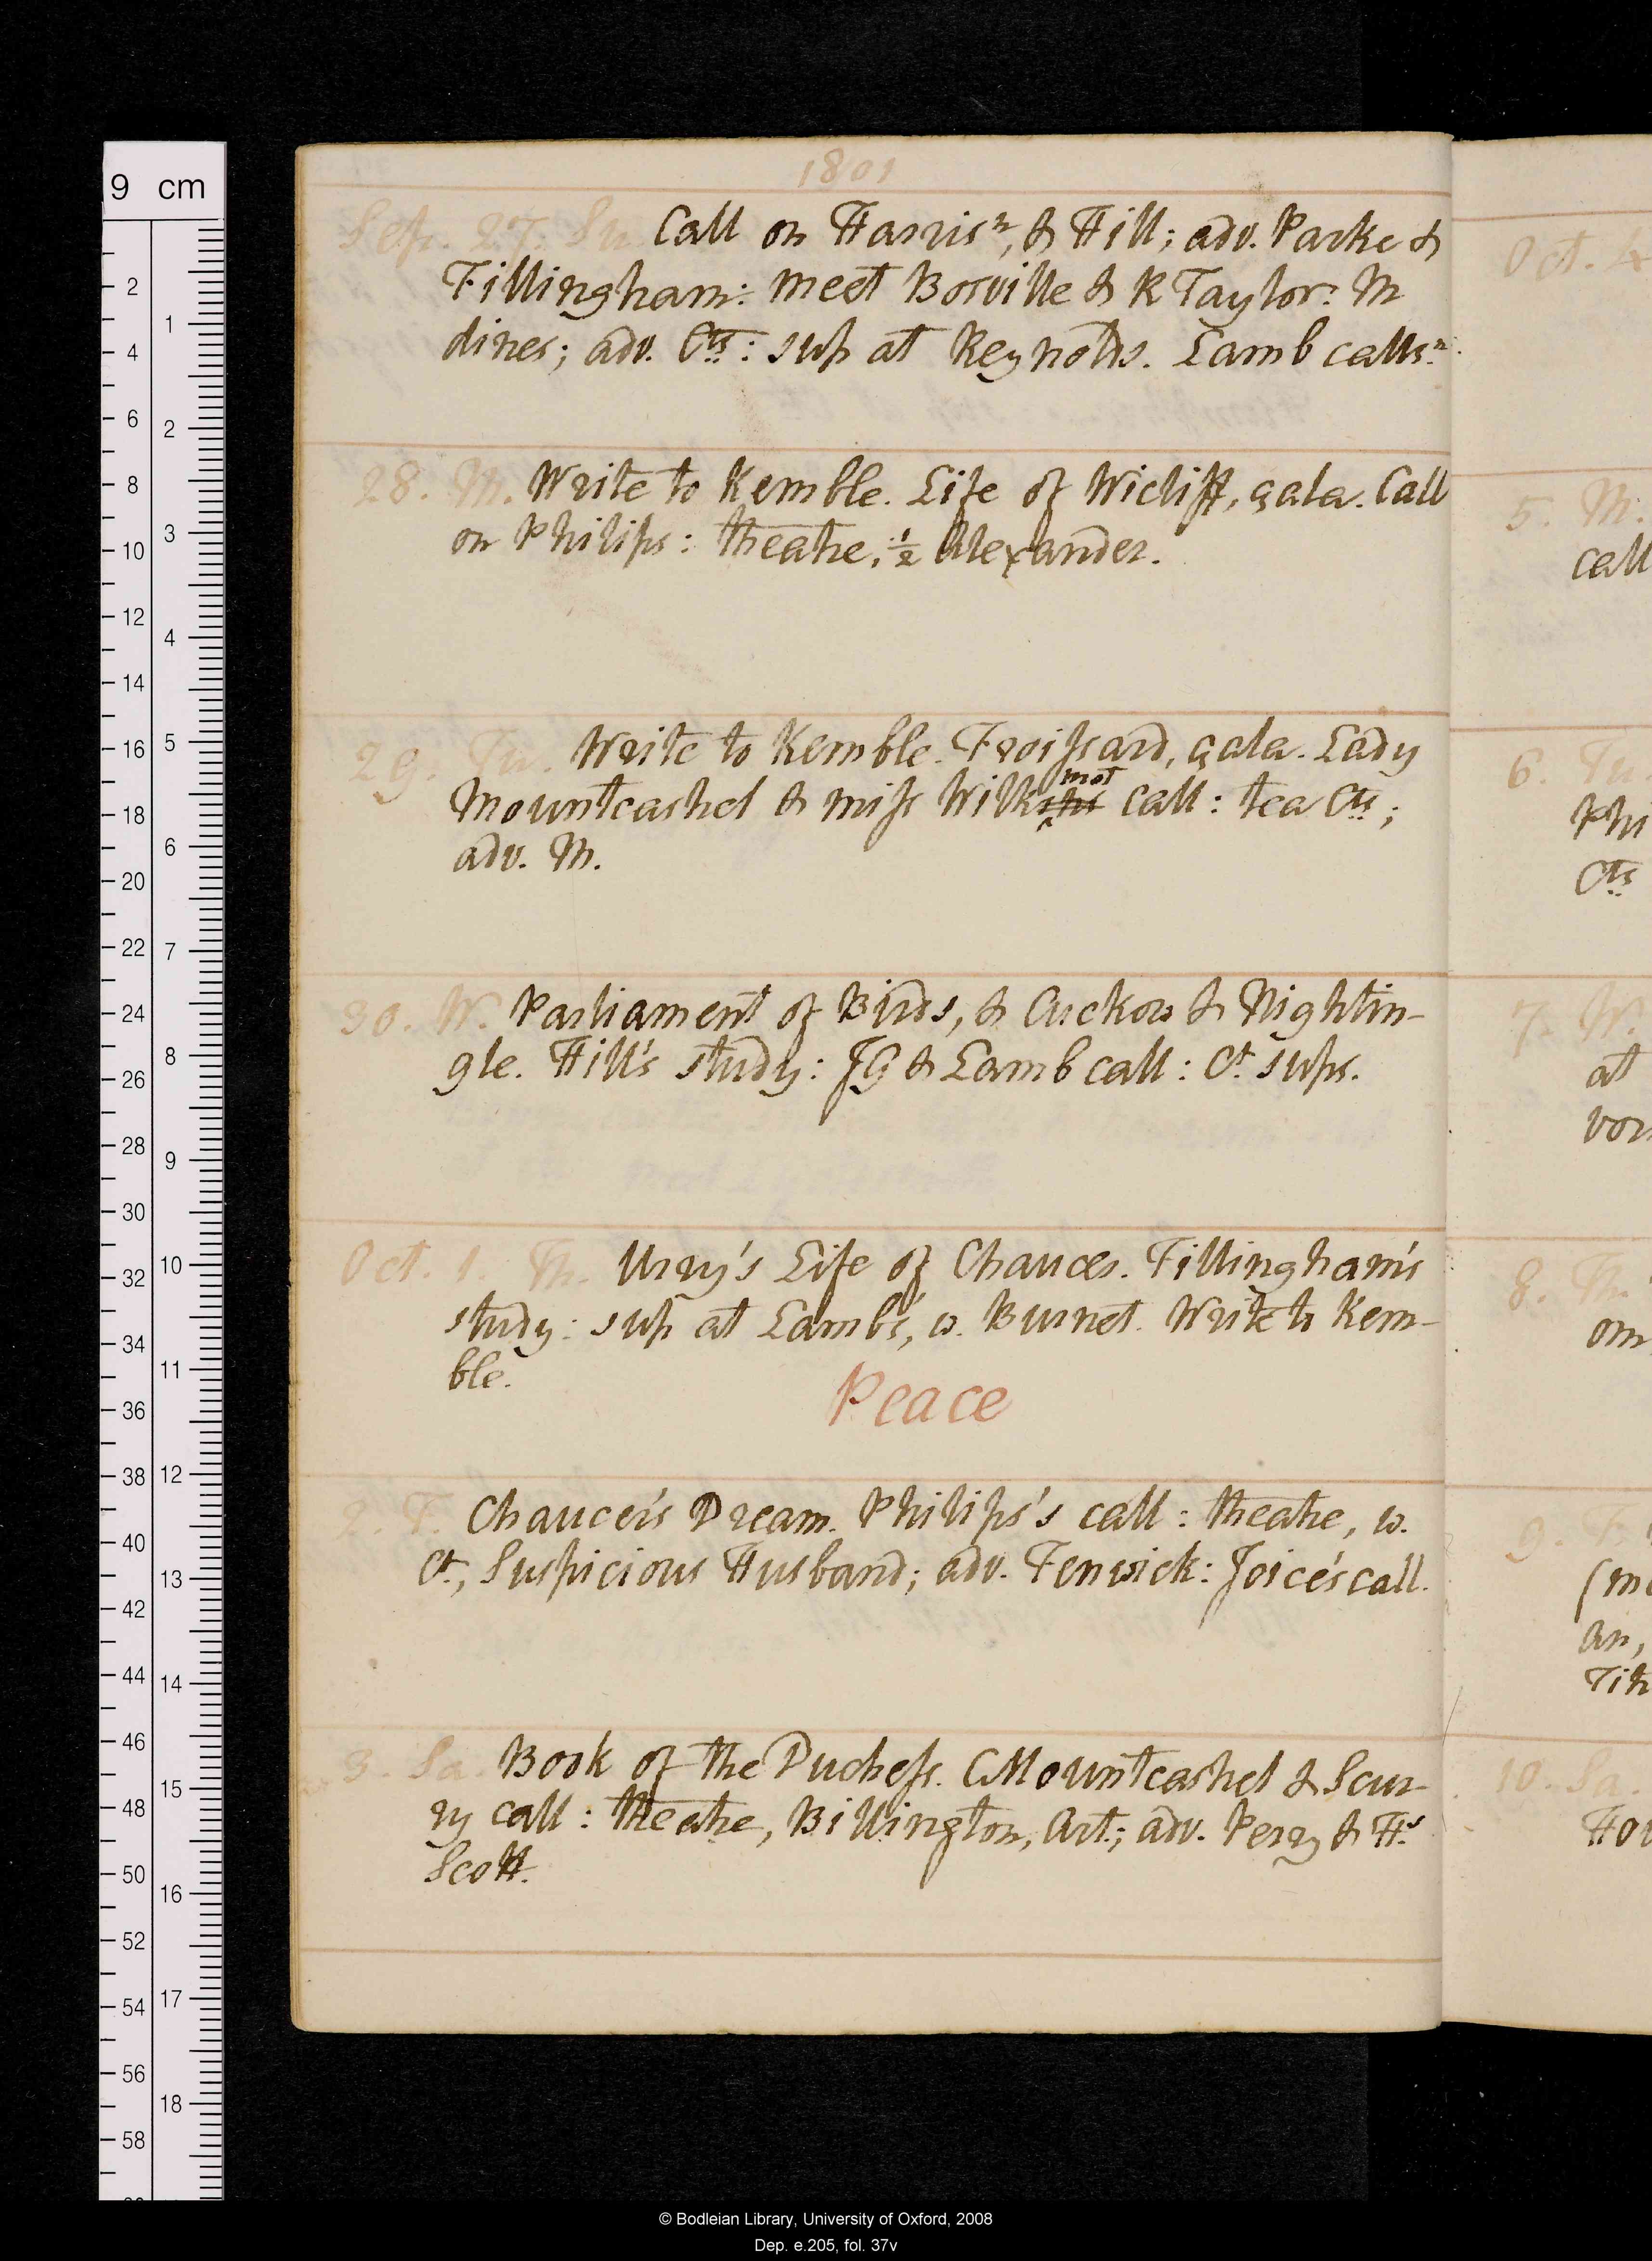 1801
Sep. 27. Su. Call on Harrisn, & Hill; adv. Parke &
Fillingham: meet Bosville & R Taylor: M
dines; adv. Cts: sup at Reynolds. Lamb callsn.
28. M. Write to Kemble. Life of Wicliff, çala. Call
on Philips: theatre, ½ Alexander.
29. Tu. Write to Kemble. Froissard, çala. Lady
Mountcashel & miss Wilkmot call: tea Cts;
adv. M.
30. W. Parliament of Birds, & Cuckow & Nightin-
gle. Hill's study: JG & Lamb call: Ct sups.
Oct. 1. Th. Urry's Life of Chaucer. Fillingham's
study: sup at Lamb's, w. Burnet. Write to Kem-
ble.
Peace
2. F. Chaucer's Dream. Philips's call: theatre, w.
Ct, Suspicious Husband; adv. Fenwick: Joice's call.
3. Sa. Book of the Duchess. CMountcashel & Scur-
ry call: theatre, Billington, Art.; adv. Perry & Hs
Scott.
Oct. 4
5. M.
call
6. Tu
Phi
Cts
7. W.
at
vou
8. Th.
om
9. F.
(mo
an,
Tit
10. Sa.
Hov
9 cm
2
4
6
8
10
12
14
16
18
20
22
24
26
28
30
32
34
36
38
40
42
44
46
48
50
52
54
56
58
1
2
3
4
5
6
7
8
9
10
11
12
13
14
15
16
17
18
© Bodleian Library, University of Oxford, 2008
Dep. e.205, fol. 37v